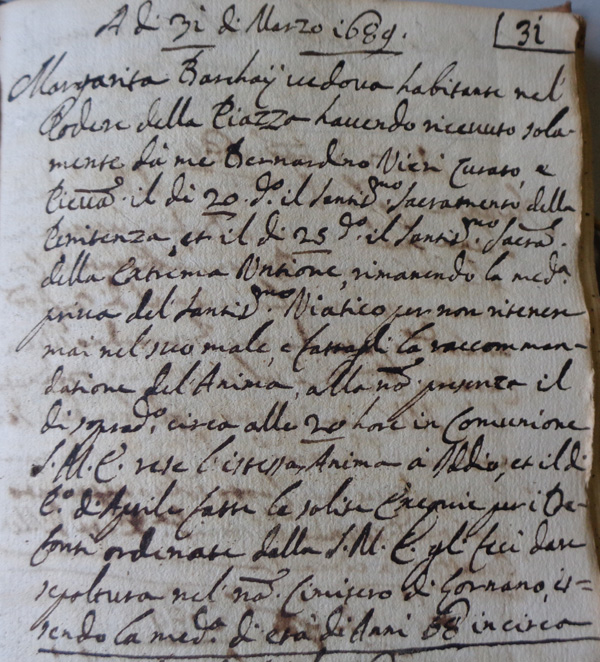 A di 31 di Marzo 1689. 31
Margarita Barchaij vedova habitante nel
Podere della Piazza havendo ricevuto sola-
mente da me Bernardino Nieri Curato, e
Pievan.º il di 20 d.º il Santis.mo Sacramento della
Penitenza, et il di 25 d.º il Santis.mo Sacra.º
della Extrema Untione, rimanendo la med.ª
priva del Santis.mo Viatico per non ritenere
mai nel suo male, e fattagli la raccomman-
datione del Anima, alla nrã presenza il
di soprad.º circa alle 20 hore in Comunione
S. M. E. rese l'istessa Anima à Iddio, et il di
P.º di Aprile fatte le solite Exequie per i De-
fonti ordinate dalla S. M. E. gli feci dare
sepoltura nel nrõ Cimitero di Gornano, es-
sendo la med.ª di età di Anni 68 in circa